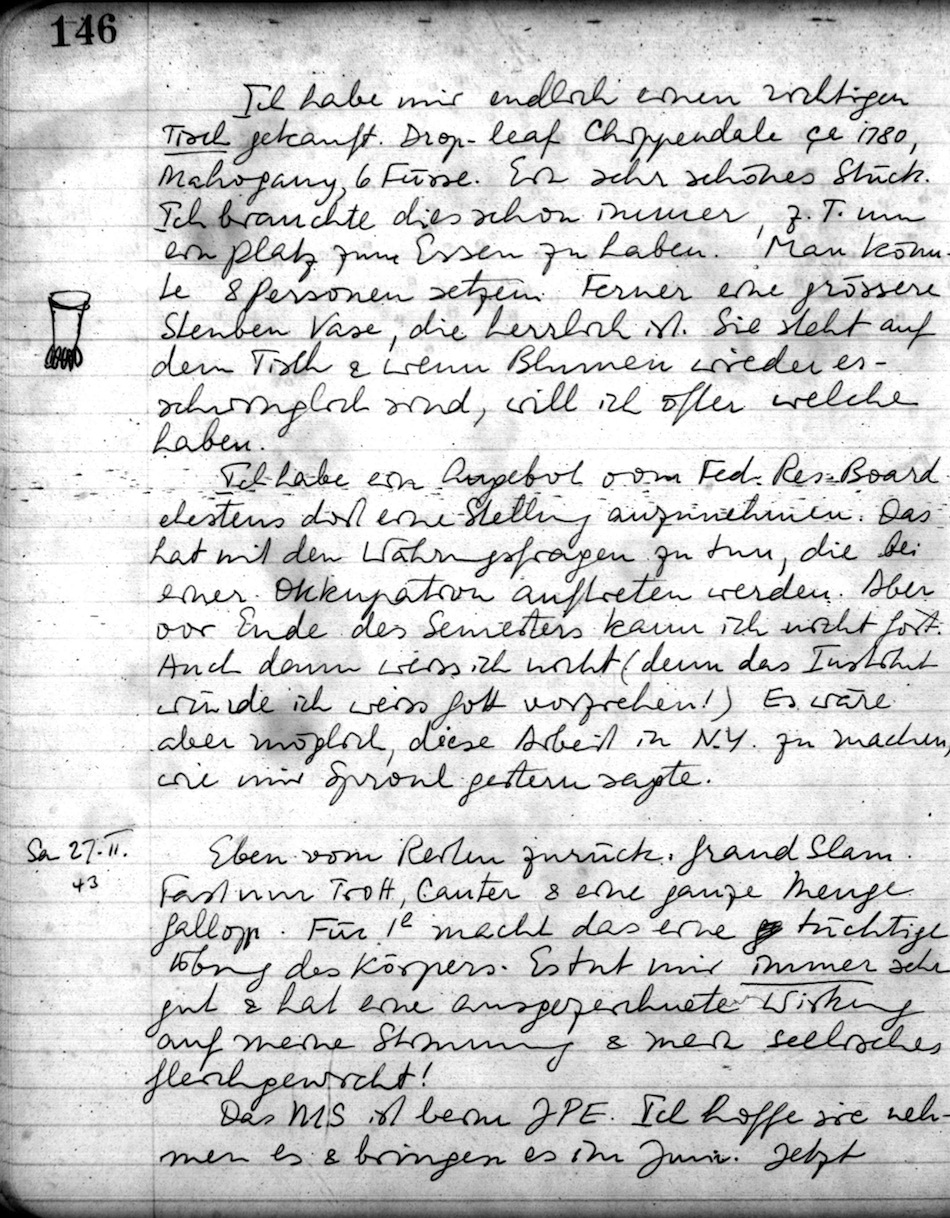 146
Ich habe mir endlich einen richtigen
Tisch gekauft. Drop-leaf Chippendale ça 1780,
Mahogany, 6 Füsse. Ein sehr schönes Stück.
Ich brauchte dies schon immer, z. T. um
ein Platz zum Essen zu haben. Man könn-
te 8 Personen setzen. Ferner eine grössere
Steuben Vase, die herrlich ist. Sie steht auf
dem Tisch & wenn Blumen wieder er-
schwinglich sind, will ich öfter welche
haben.
Ich habe ein Angebot vom Fed. Res. Board
ehestens dort eine Stellung anzunehmen. Das
hat mit den Währungsfragen zu tun, die bei
einer Okkupation auftreten werden. Aber
vor Ende des Semesters kann ich nicht fort.
Auch dann weiss ich nicht (denn das Institut
würde ich weiss Gott vorziehen!) Es wäre
aber möglich, diese Arbeit in N.Y. zu machen,
wie mir Sproul gestern sagte.
Sa 27. II.
43
Eben vom Reiten zurück. Grand Slam.
Fast nur Trott, Canter & eine ganze Menge
Gallopp. Für 1e macht das eine tüchtige
Übung des Körpers. Es tut mir immer sehr
gut & hat eine ausgezeichnete Wirkung
auf meine Stimmung & mein seelisches
Gleichgewicht!
Das MS ist beim JPE. Ich hoffe sie neh-
men es & bringen es im Juni. Jetzt